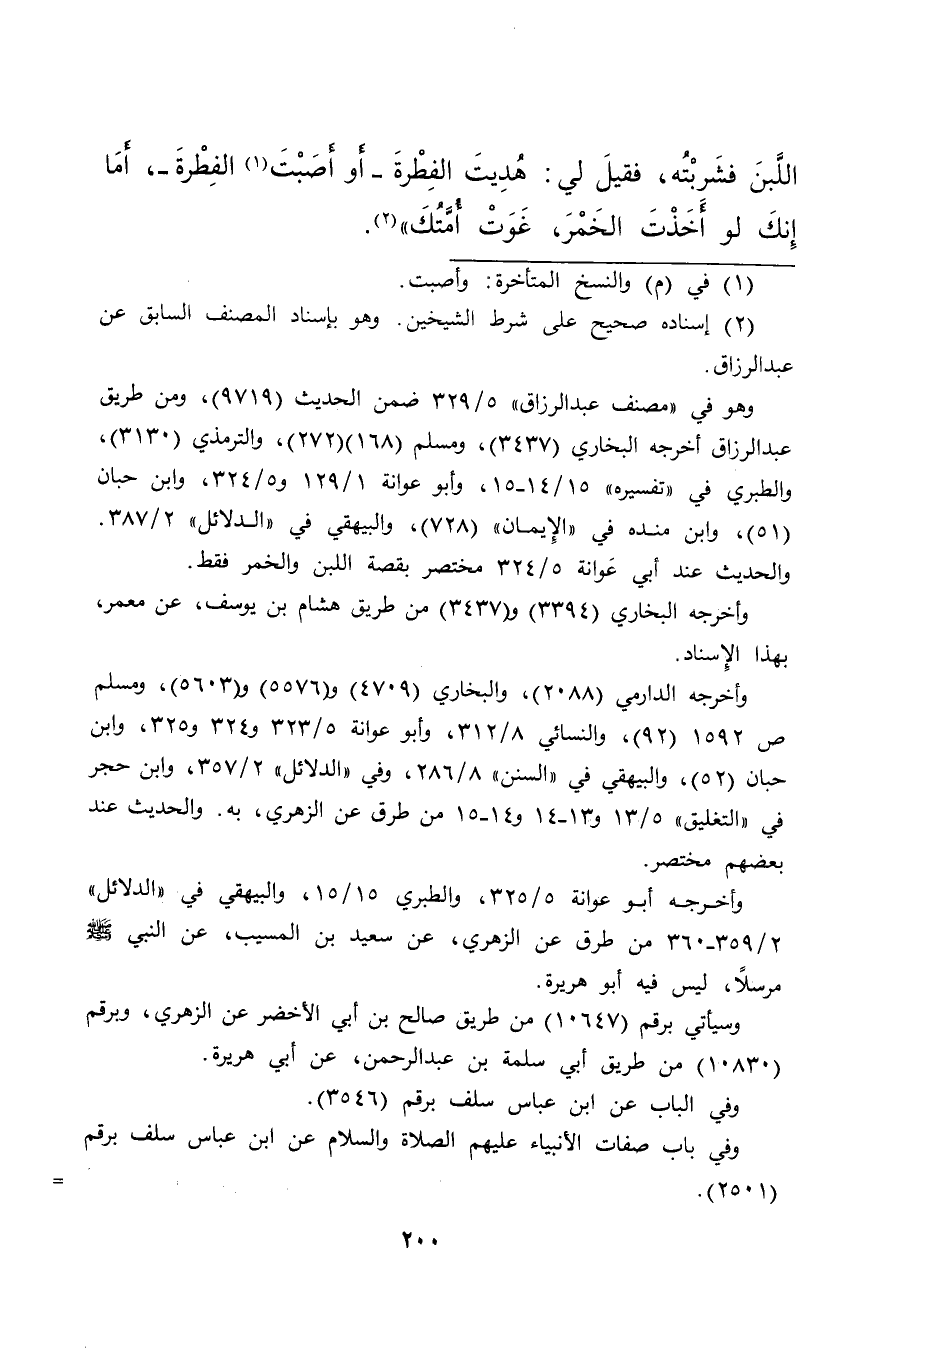 اللَّبنَ فشَرِبْتُه، فقيلَ لي: هُدِيتَ الفِطْرةَ ـ أَو أَصَبْتَ(١) الفِطْرةَ ـ، أَمَا
إِنكَ لو أَخَذْتَ الخَمْرَ، غَوَتْ أُمَّتُكَ»(٢).
(١) في (م) والنسخ المتأخرة: وأصبت.
(٢) إسناده صحيح على شرط الشيخين. وهو بإسناد المصنف السابق عن
عبدالرزاق.
وهو في «مصنف عبدالرزاق» ٣٢٩/٥ ضمن الحديث (٩٧١٩)، ومن طريق
عبدالرزاق أخرجه البخاري (٣٤٣٧)، ومسلم (١٦٨)(٢٧٢)، والترمذي (٣١٣٠)،
والطبري في «تفسيره» ١٤/١٥ـ١٥، وأبو عوانة ١٢٩/١ و٣٢٤/٥، وابن حبان
(٥١)، وابن منده في «الإيمان» (٧٢٨)، والبيهقي في «الدلائل» ٣٨٧/٢.
والحديث عند أبي عَوانة ٣٢٤/٥ مختصر بقصة اللبن والخمر فقط.
وأخرجه البخاري (٣٣٩٤) و(٣٤٣٧) من طريق هشام بن يوسف، عن معمر،
بهذا الإسناد.
وأخرجه الدارمي (٢٠٨٨)، والبخاري (٤٧٠٩) و(٥٥٧٦) و(٥٦٠٣)، ومسلم
ص ١٥٩٢ (٩٢)، والنسائي ٣١٢/٨، وأبو عوانة ٣٢٣/٥ و٣٢٤ و٣٢٥، وابن
حبان (٥٢)، والبيهقي في «السنن» ٢٨٦/٨، وفي «الدلائل» ٣٥٧/٢، وابن حجر
في «التغليق» ١٣/٥ و١٣ـ١٤ و١٤ـ١٥ من طرق عن الزهري، به. والحديث عند
بعضهم مختصر.
وأخرجه أبو عوانة ٣٢٥/٥، والطبري ١٥/١٥، والبيهقي في «الدلائل»
٣٥٩/٢ـ٣٦٠ من طرق عن الزهري، عن سعيد بن المسيب، عن النبي ﷺ
مرسلًا، ليس فيه أبو هريرة.
وسيأتي برقم (١٠٦٤٧) من طريق صالح بن أبي الأخضر عن الزهري، وبرقم
(١٠٨٣٠) من طريق أبي سلمة بن عبدالرحمن، عن أبي هريرة.
وفي الباب عن ابن عباس سلف برقم (٣٥٤٦).
وفي باب صفات الأنبياء عليهم الصلاة والسلام عن ابن عباس سلف برقم
(٢٥٠١).
=
٢٠٠